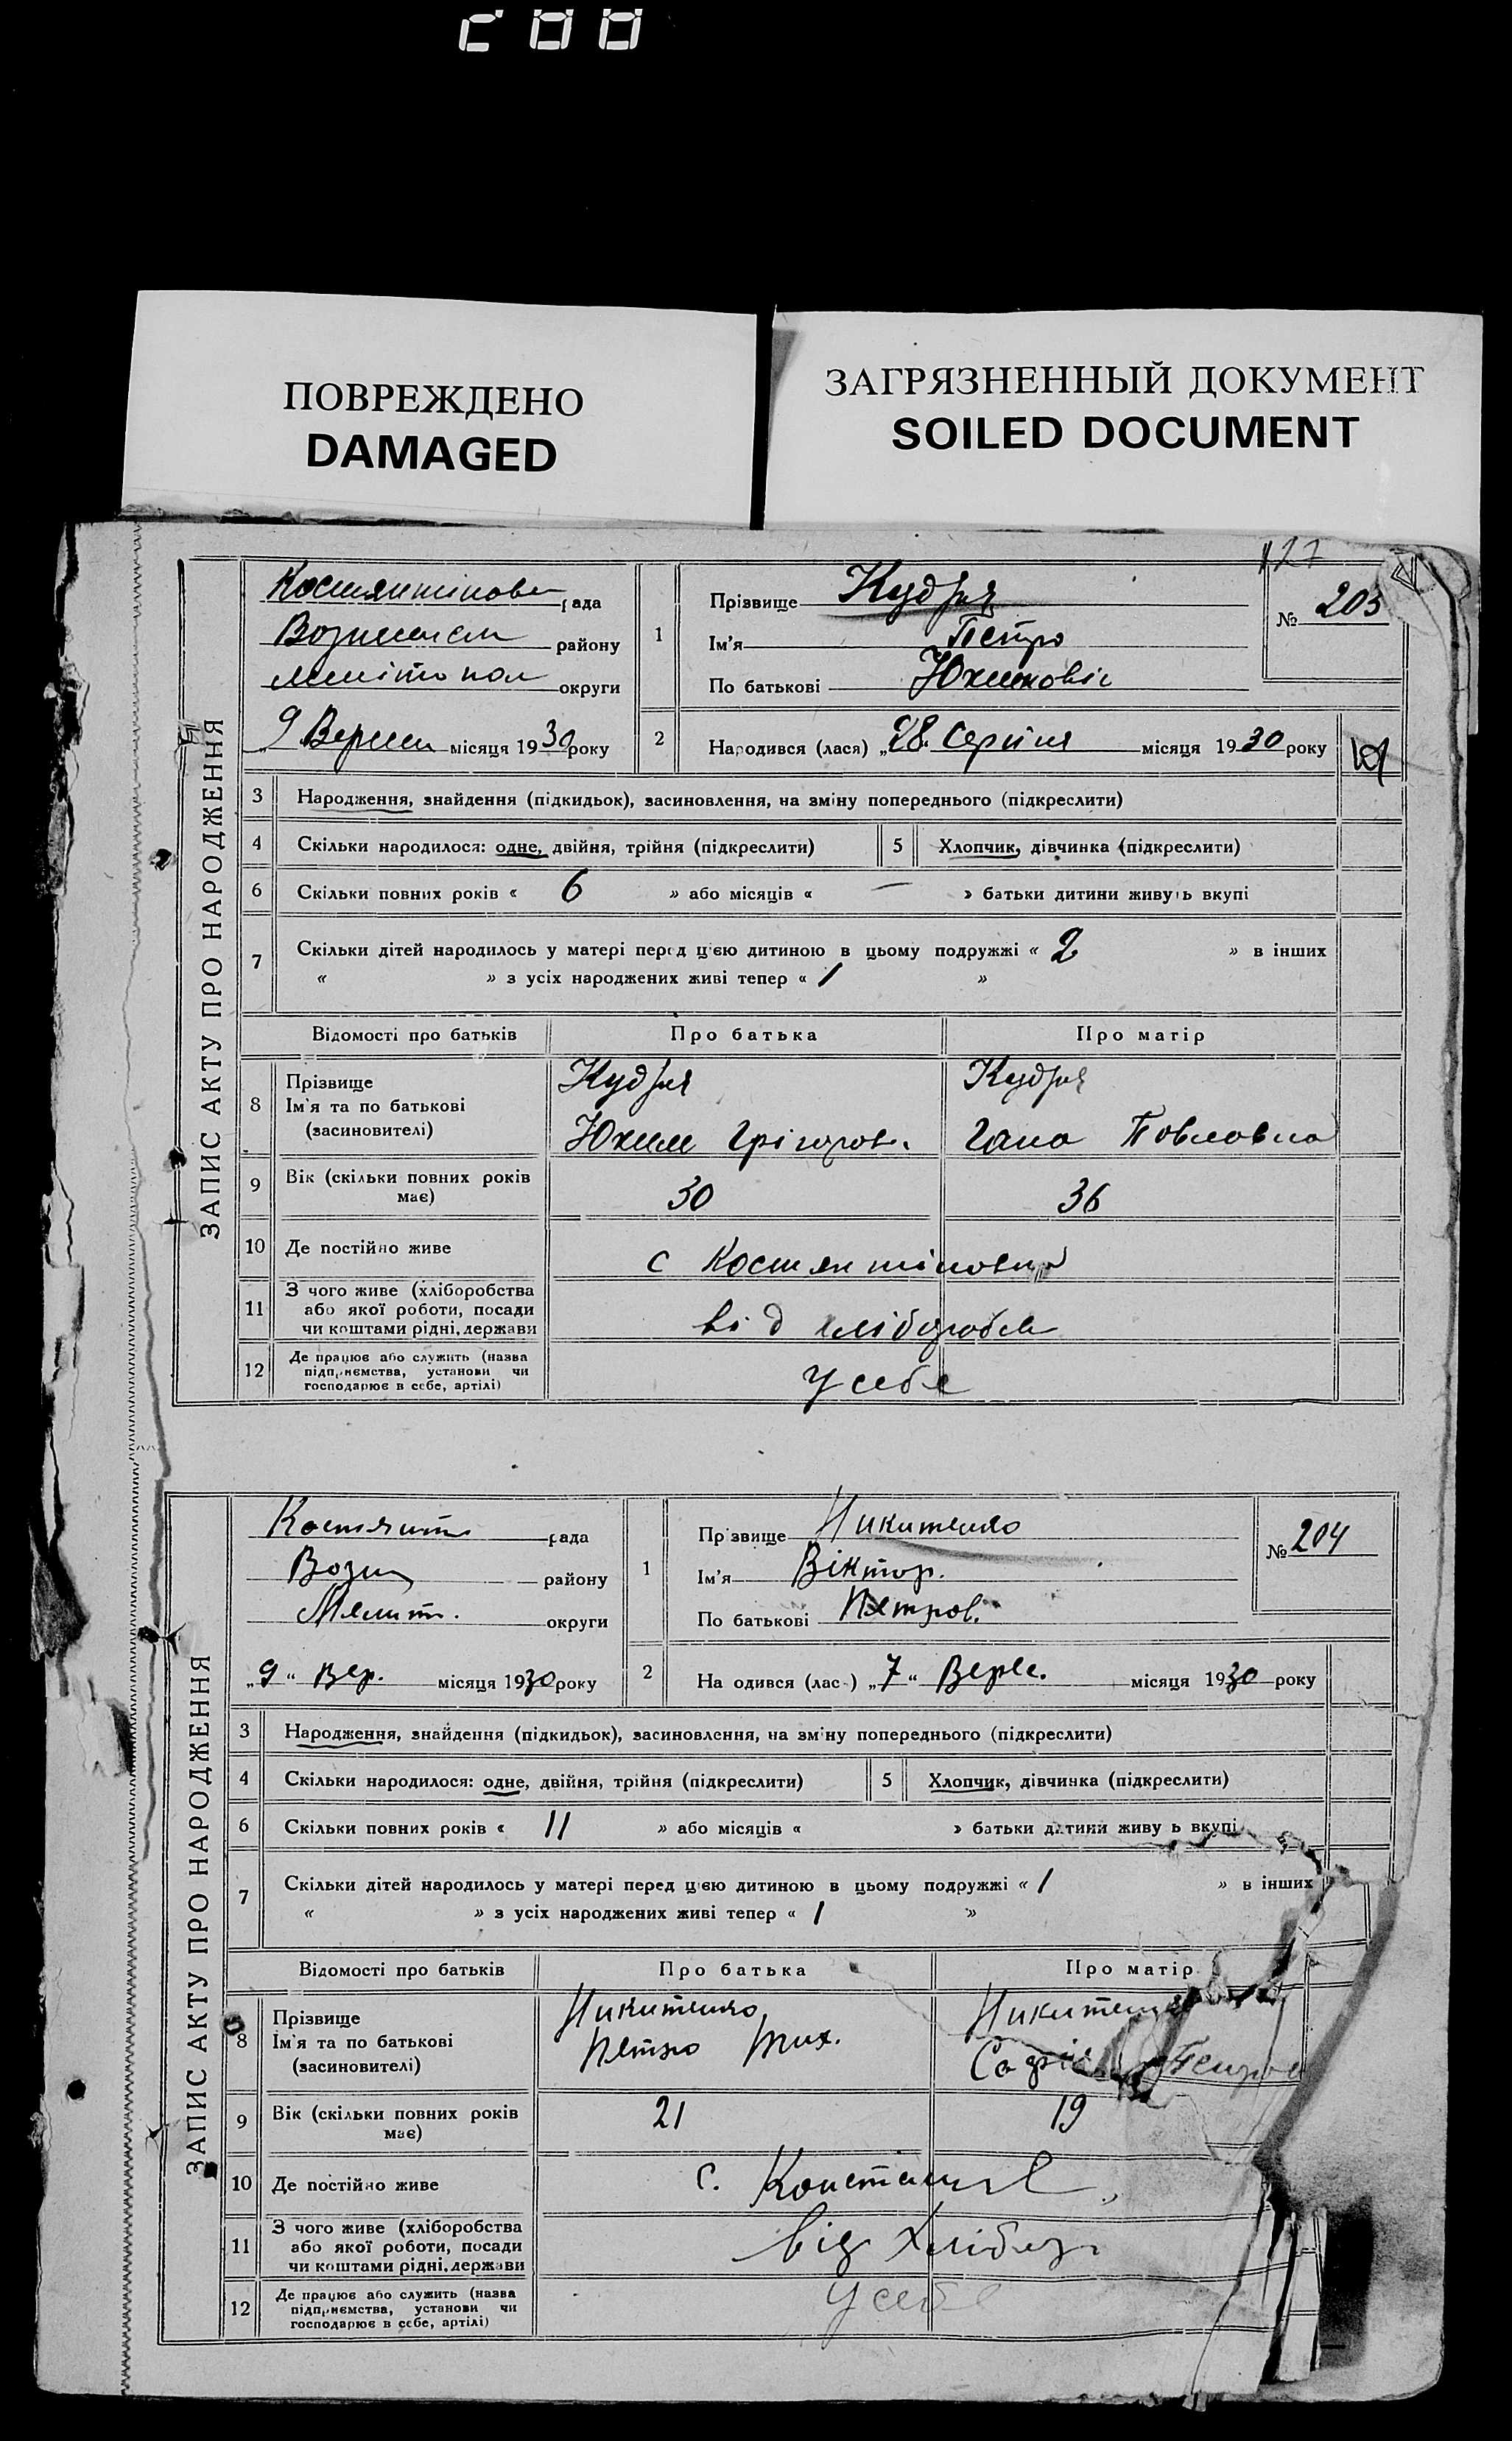 ПОВРЕЖДЕНО
DAMAGED
ЗАГРЯЗНЕННЫЙ ДОКУМЕНТ
SOILED DOCUMENT
127
ЗАПИС АКТУ ПРО НАРОДЖЕННЯ
Костянтінов рада
Вознесенсь району
мелітопол округи
9 Вересн місяця 1930 року
1 Прізвище Кудря
Ім'я Петро
По батькові Юхимовіч
№ 203
2 Народився (лася) „28 Серпня місяця 1930 року
3 Народження, знайдення (підкидьок), засиновлення, на зміну попереднього (підкреслити)
4 Скільки народилося: одне, двійня, трійня (підкреслити) 5 Хлопчик, дівчинка (підкреслити)
6 Скільки повних років « 6 » або місяців « — » батьки дитини живуть вкупі
7 Скільки дітей народилось у матері перед цією дитиною в цьому подружжі « 2 » в інших
« » з усіх народжених живі тепер « 1 »
Відомості про батьків Про батька Про матір
8 Прізвище Кудря Кудря
Ім'я та по батькові
(засиновителі) Юхим Грігоров. Гана Павловна
9 Вік (скільки повних років має) 30 36
10 Де постійно живе с Костянтіновка
11 З чого живе (хліборобства
або якої роботи, посади
чи коштами рідні, держави від хлібороб
12 Де працює або служить (назва
підприємства, установи чи
господарює в себе, артілі) У себе
ЗАПИС АКТУ ПРО НАРОДЖЕННЯ
Костянт рада
Возн району
Мелит. округи
„9“ Вер. місяця 1930 року
1 Прізвище Никитенко
Ім'я Віктор.
По батькові Петров.
№ 204
2 На одився (лас ) „7“ Верес. місяця 1930 року
3 Народження, знайдення (підкидьок), засиновлення, на зміну попереднього (підкреслити)
4 Скільки народилося: одне, двійня, трійня (підкреслити) 5 Хлопчик, дівчинка (підкреслити)
6 Скільки повних років « 11 » або місяців « » батьки дитини живу ь вкупі
7 Скільки дітей народилось у матері перед цією дитиною в цьому подружжі « 1 » в інших
« » з усіх народжених живі тепер « 1 »
Відомості про батьків Про батька Про матір
8 Прізвище Никитенко Никитен
Ім'я та по батькові
(засиновителі) Петро Тих. Софія Петров
9 Вік (скільки повних років має) 21 19
10 Де постійно живе с.
11 З чого живе (хліборобства
або якої роботи, посади
чи коштами рідні, держави від хлібор
12 Де працює або служить (назва
підприємства, установи чи
господарює в себе, артілі) У себе